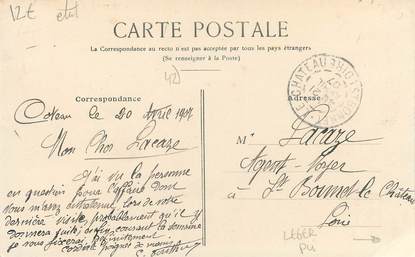 12€
CARTE POSTALE
La Correspondance au recto n'est pas acceptée par tous les pays étrangers
(Se renseigner à la Poste)
42)
Correspondance
Adresse
le 20 Avril 1907
Mon Cher Lacaze
J'ai vu la personne
en question pour l'affaire dont
vous m'avez entretenu lors de notre
dernière visite, probablement qu'il y
donnera suite; enfin courant la semaine
je vous fixerai
poignée de mains
M. Lacaze
Agent-Voyer
à St Bonnet-le-Château
Loire
LEGER
PLI